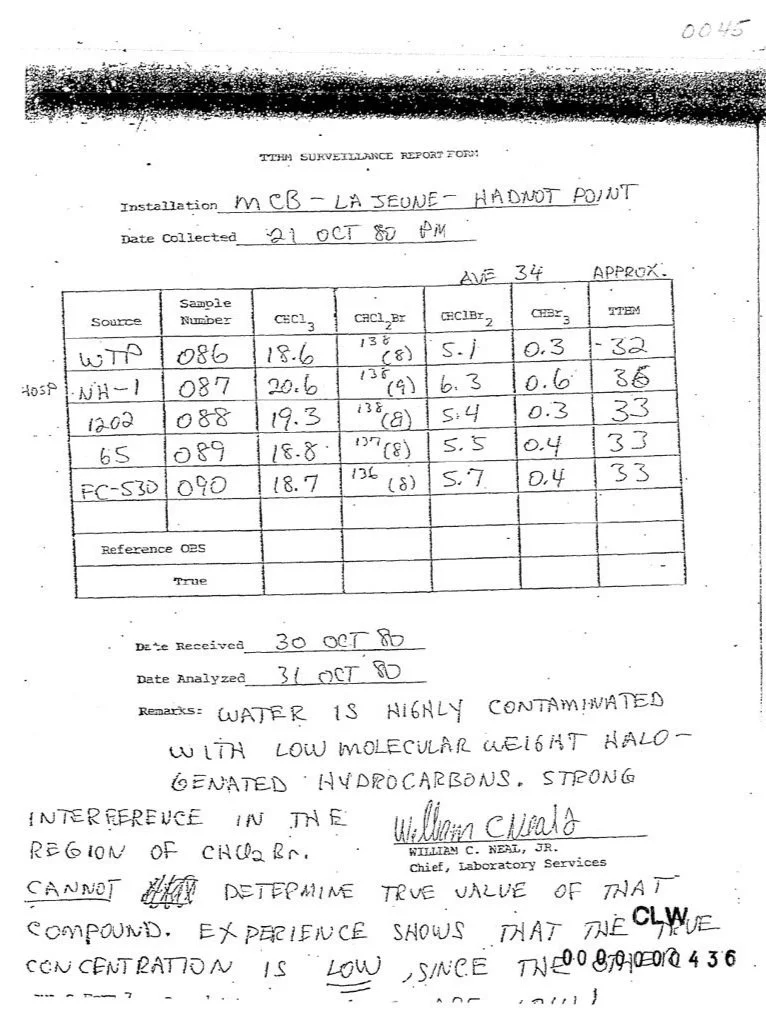 0045
TTHM SURVEILLANCE REPORT FORM
Installation MCB - LA JEUNE - HADNOT POINT
Date Collected 21 OCT 80 PM
AVE 34 APPROX.
Source Sample Number CHCl3 CHCl2Br CHClBr2 CHBr3 TTHM
WTP 086 18.6 138 (8) 5.1 0.3 -32
HOSP NH-1 087 20.6 138 (9) 6.3 0.6 36
1202 088 19.3 138 (8) 5.4 0.3 33
65 089 18.8 137 (8) 5.5 0.4 33
FC-530 090 18.7 136 (8) 5.7 0.4 33
Reference OBS
True
Date Received 30 OCT 80
Date Analyzed 31 OCT 80
Remarks: WATER IS HIGHLY CONTAMINATED
WITH LOW MOLECULAR WEIGHT HALO-
GENATED HYDROCARBONS. STRONG
INTERFERENCE IN THE
William C Neal Jr
REGION OF CHCl2Br.
WILLIAM C. NEAL, JR.
Chief, Laboratory Services
CANNOT DETERMINE TRUE VALUE OF THAT
COMPOUND. EXPERIENCE SHOWS THAT THE TRUE
CLW
CONCENTRATION IS LOW, SINCE THE OTHER
0000000436